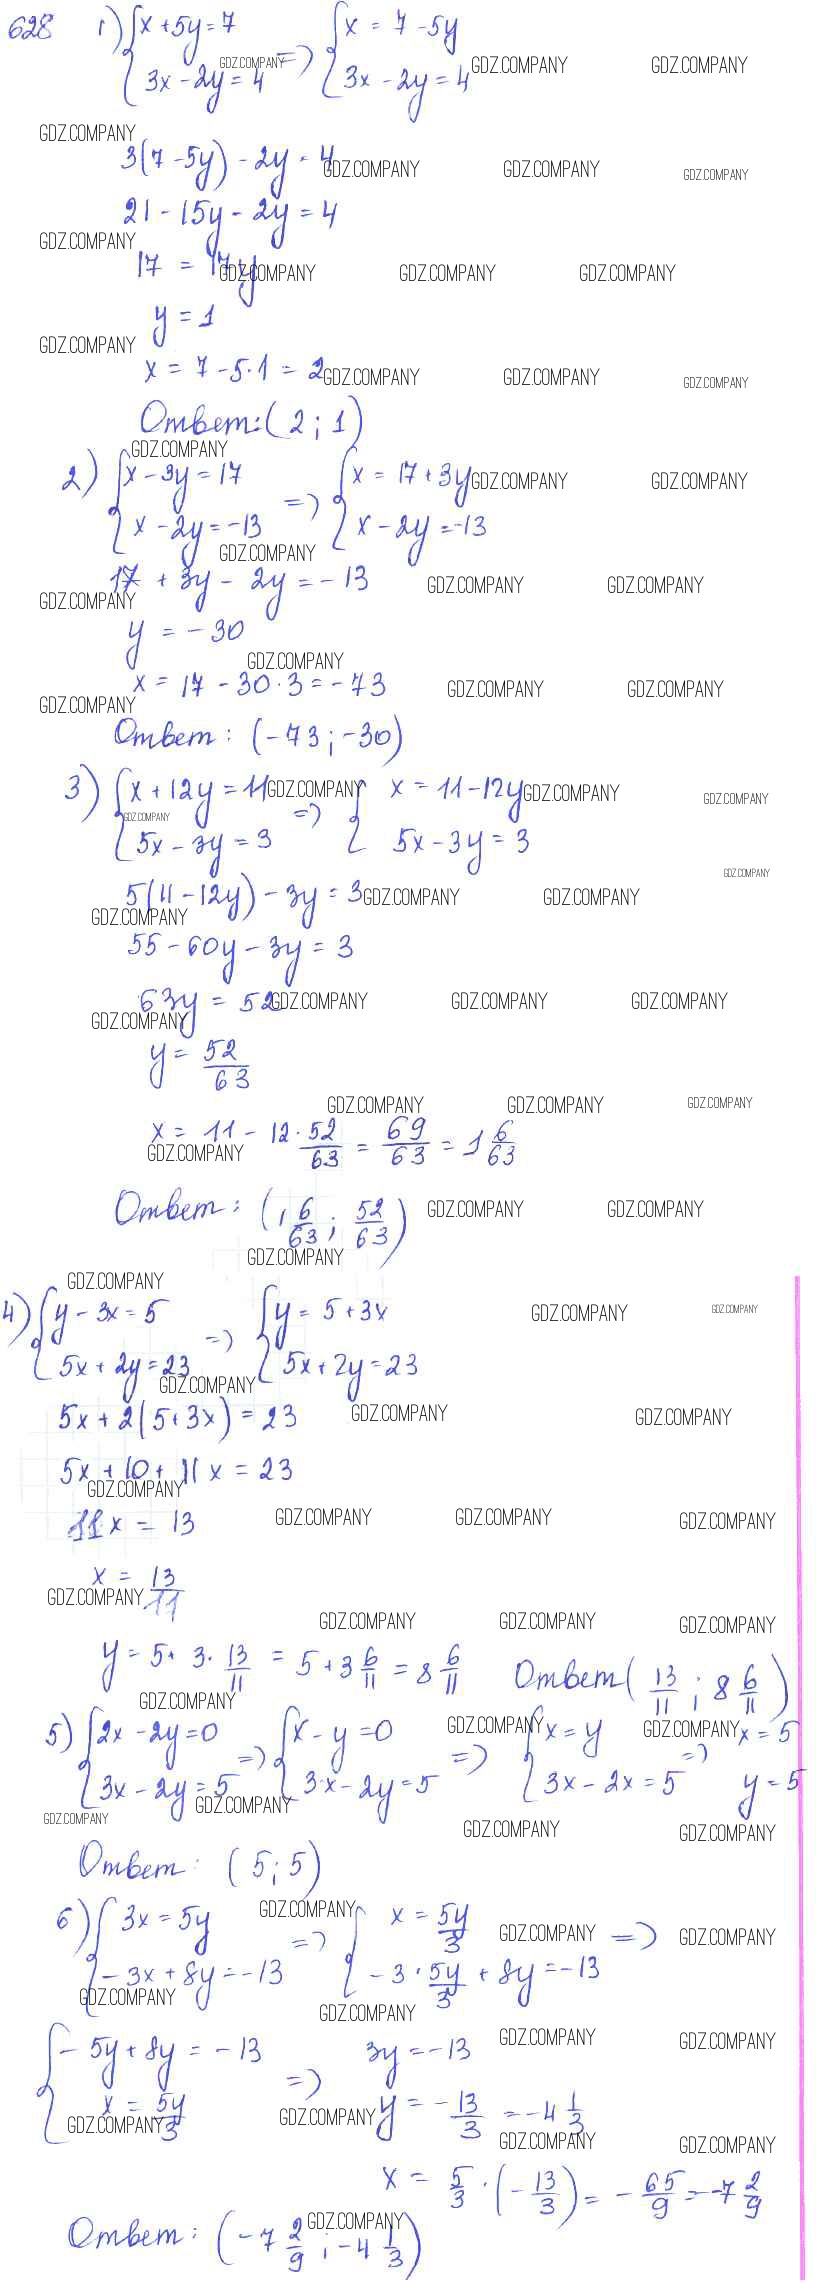 628 1) { x + 5y = 7 => { x = 7 - 5y
3x - 2y = 4 3x - 2y = 4
3(7 - 5y) - 2y = 4
21 - 15y - 2y = 4
17 = 17y
y = 1
x = 7 - 5·1 = 2
Ответ: (2; 1)
2) { x - 3y = 17 => { x = 17 + 3y
x - 2y = -13 x - 2y = -13
17 + 3y - 2y = -13
y = -30
x = 17 - 30·3 = -73
Ответ: (-73; -30)
3) { x + 12y = 11 => { x = 11 - 12y
5x - 3y = 3 5x - 3y = 3
5(11 - 12y) - 3y = 3
55 - 60y - 3y = 3
63y = 52
y = 52/63
x = 11 - 12·52/63 = 69/63 = 1 6/63
Ответ: (1 6/63; 52/63)
4) { y - 3x = 5 => { y = 5 + 3x
5x + 2y = 23 5x + 2y = 23
5x + 2(5 + 3x) = 23
5x + 10 + 11x = 23
11x = 13
x = 13/11
y = 5 + 3·13/11 = 5 + 3 6/11 = 8 6/11 Ответ (13/11; 8 6/11)
5) { 2x - 2y = 0 => { x - y = 0 => { x = y => x = 5
3x - 2y = 5 3x - 2y = 5 3x - 2x = 5 y = 5
Ответ: (5; 5)
6) { 3x = 5y => { x = 5y/3 =>
-3x + 8y = -13 -3·5y/3 + 8y = -13
{ -5y + 8y = -13 => 3y = -13
x = 5y/3 y = -13/3 = -4 1/3
x = 5/3·(-13/3) = -65/9 = -7 2/9
Ответ: (-7 2/9; -4 1/3)
GDZ.COMPANY